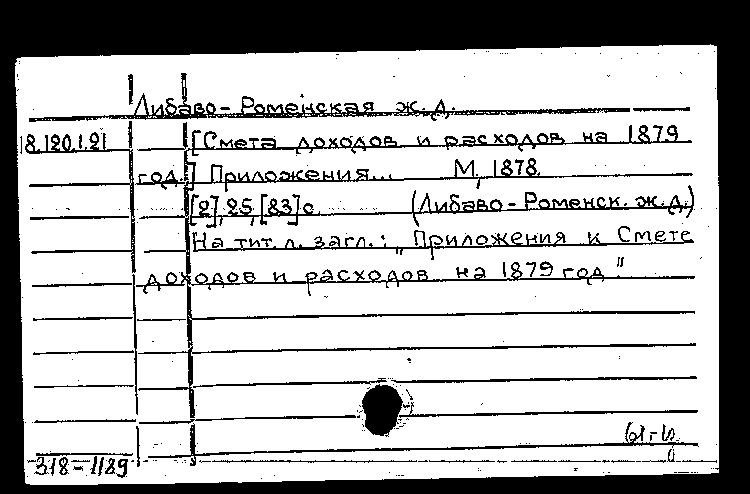 Либаво-Роменская ж.д.
18.120.1.21 [Смета доходов и расходов на 1879
год.] Приложения... М, 1878.
[2], 25, [83] с. (Либаво-Роменск. ж.д.)
На тит. л. загл.: „Приложения к Смете
доходов и расходов на 1879 год"
318-1129